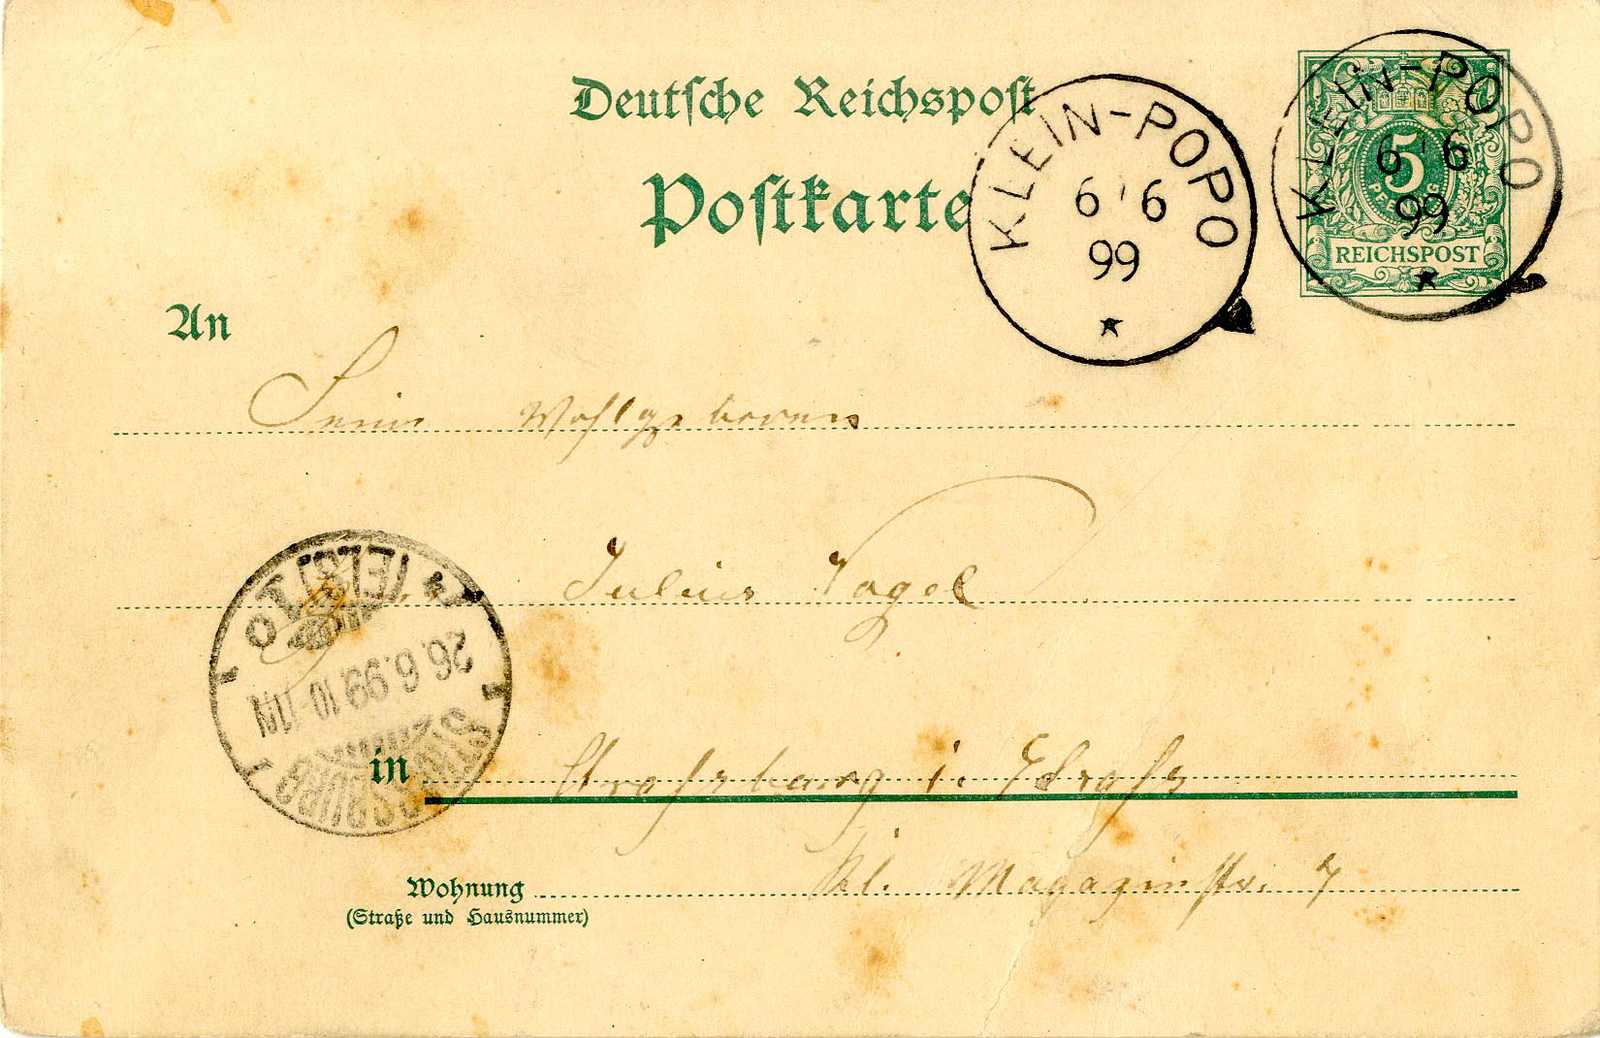 Deutsche Reichspost
Postkarte
KLEIN-POPO
6 6
99
KLEIN-POPO
6 6
99
5
PFENNIG
REICHSPOST
An
Seiner Wohlgeboren
Julius Vogel
in Strassburg i.
Kl. Magazinstr. 7
Wohnung
(Straße und Hausnummer)
STRASSBURG
26.6.99.10-11N
(ELS) 1